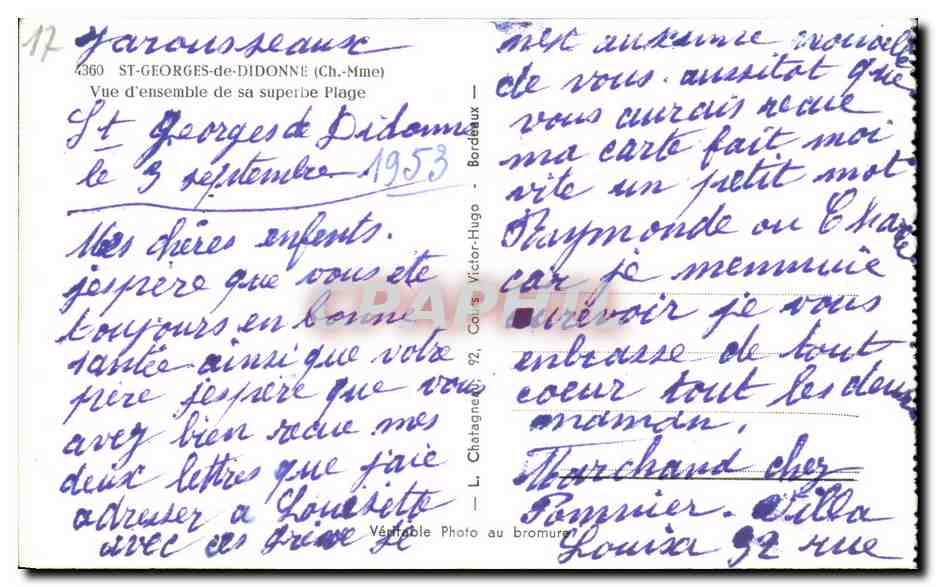 17 Jarousseaux
4360 ST-GEORGES-de-DIDONNE (Ch.-Mme)
Vue d'ensemble de sa superbe Plage
St Georges de Didonne
le 3 septembre 1953
Mes chères enfents.
j'espère que vous ête
toujours en bonne
santée ainsi que votre
père j'espère que vous
avez bien recue mes
deux lettres que j'aie
adresser a Louisette
avec
Véritable Photo au bromure
— L. Chatagneau, 92, Cours Victor-Hugo - Bordeaux —
de vous. aussitot que
vous aurais recue
ma carte fait moi
vite un petit mot
Raymonde ou
car je memnuie
aurevoir je vous
enbrasse de tout
coeur tout les deux
maman.
Marchand chez
Pommier. Villa
Louisa 92 rue
CPAPHIL